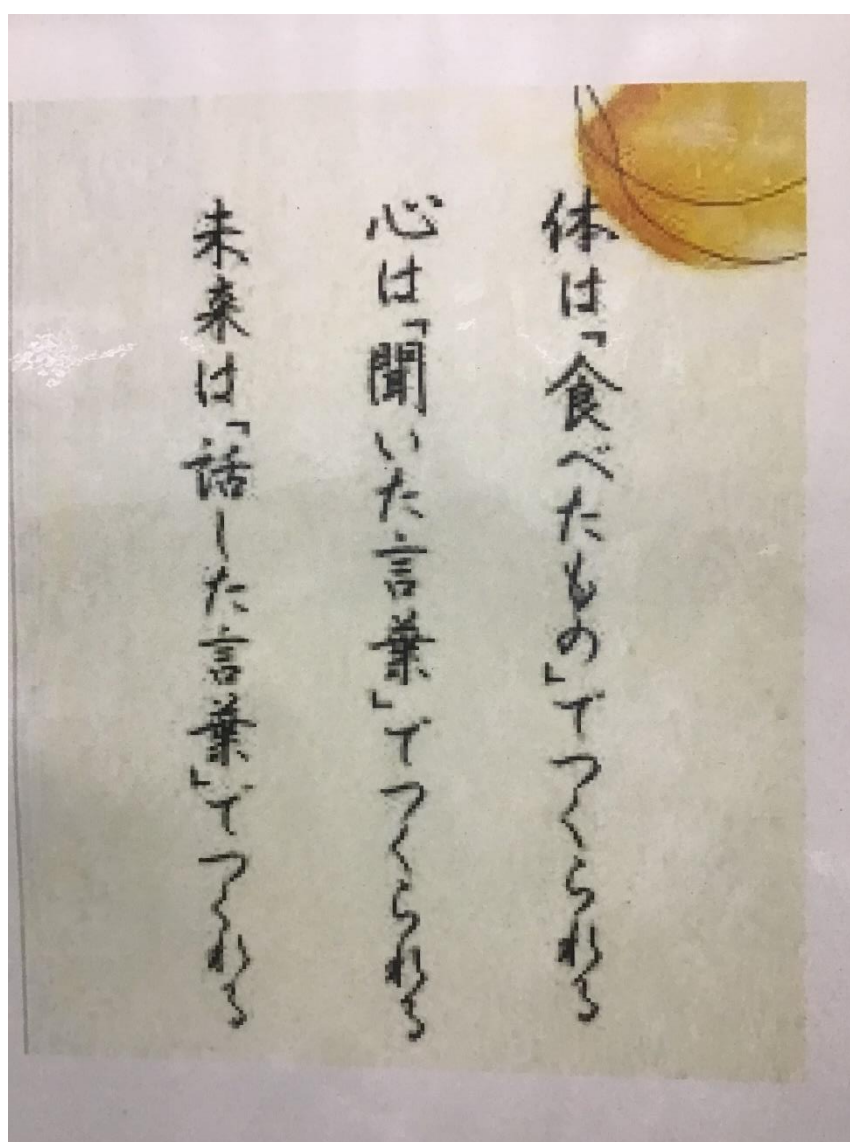 体は「食べたもの」でつくられる
心は「聞いた言葉」でつくられる
未来は「話した言葉」でつくれる